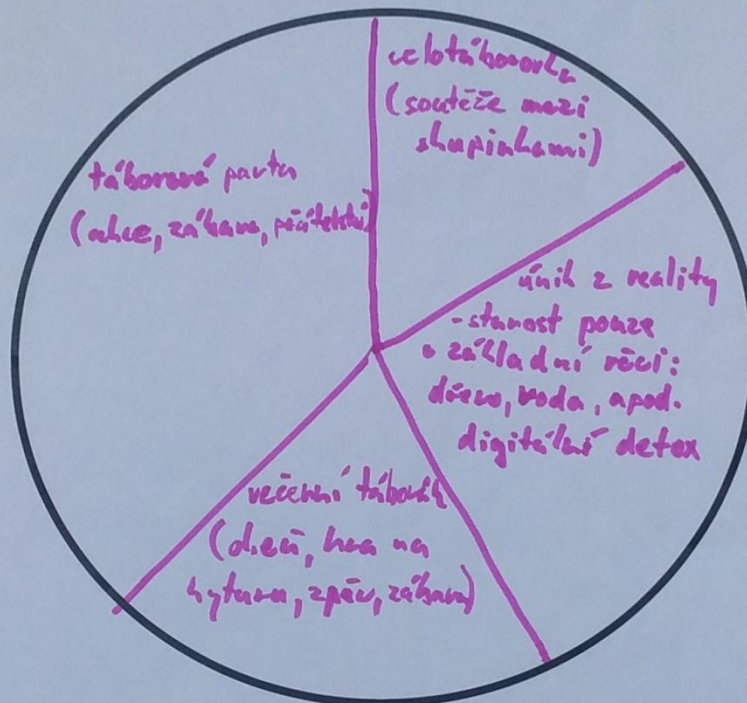 celotáborovka
(soutěže mezi
skupinkami)
táborová parta
(akce, zábava, přátelství)
únik z reality
- starost pouze
o základní věci:
dřevo, voda, apod.
digitální detox
večerní táborák
(oheň, hra na
kytaru, zpěv, zábava)